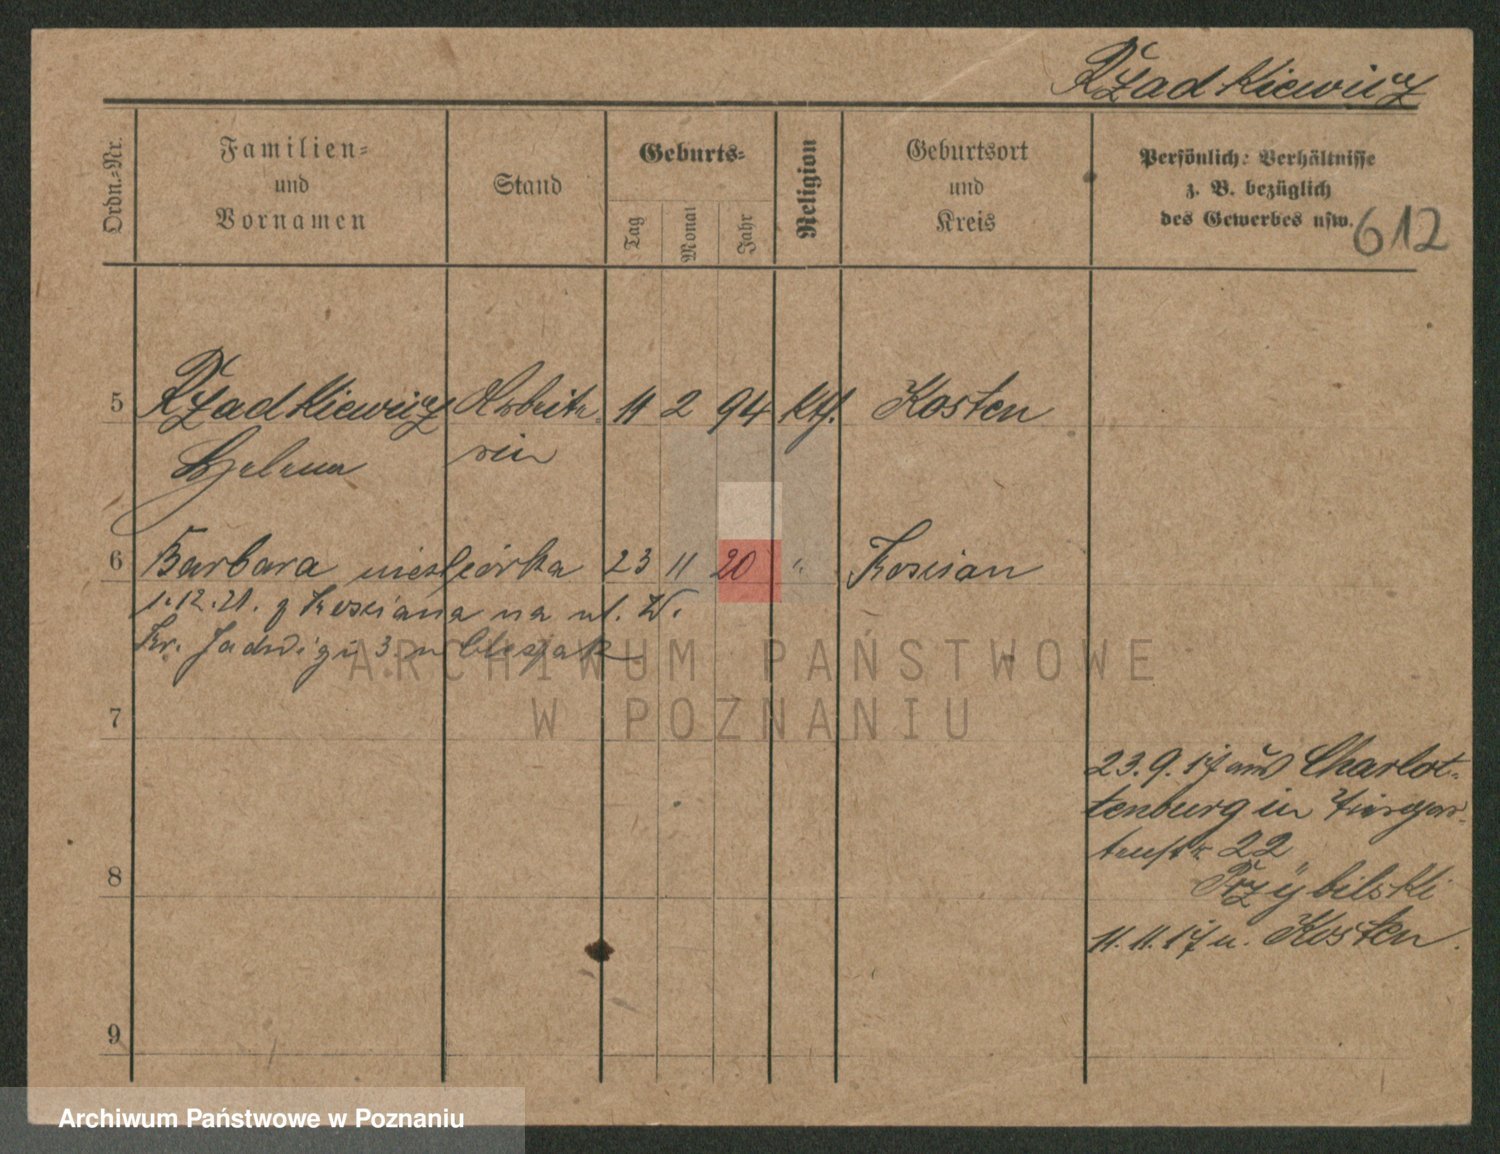 Rządkiewicz
Ordn.-Nr.
Familien-
und
Vornamen
Stand
Geburts-
Tag
Monat
Jahr
Religion
Geburtsort
und
Kreis
Persönlich: Verhältnisse
z. B. bezüglich
des Gewerbes usw.
612
5 Rządkiewicz Arbeite- 11 2 94 kth. Kosten
Helena rin
6 Barbara nieśl. córka 23 11 20 " Kościan
1.12.21. z Kościana na ul. W.
Kr. Jadwigi 3 u
7
23.9.17 aus Charlot-
tenburg in Tiergar-
tenstr. 22
Przÿbilski
8
11.11.17 n. Kosten.
9
ARCHIWUM PAŃSTWOWE
W POZNANIU
Archiwum Państwowe w Poznaniu